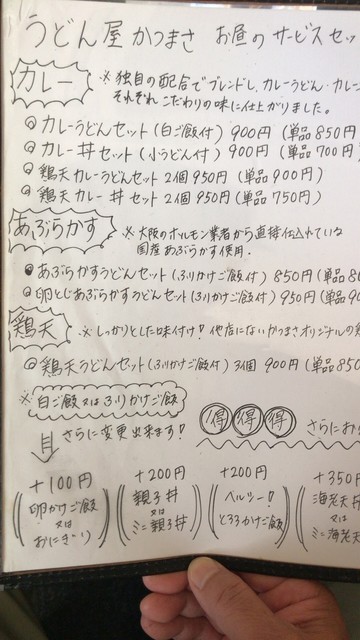 うどん屋 かつまさ お昼のサービスセッ
カレー
※ 独自の配合でブレンドし、カレーうどん・カレー
それぞれこだわりの味に仕上がりました。
◎ カレーうどんセット(白ご飯付) 900円(単品850円
◎ カレー丼セット(小うどん付) 900円(単品700円
◎ 鶏天カレーうどんセット 2個 950円(単品900円)
◎ 鶏天カレー丼セット 2個 950円(単品750円)
あぶらかす
※ 大阪のホルモン業者から直接仕入れている
国産あぶらかす使用.
◎ あぶらかすうどんセット(ふりかけご飯付) 850円(単品8
◎ 卵とじあぶらかすうどんセット(ふりかけご飯付) 950円(単品90
鶏天
※ しっかりとした味付け!他店にないかつまさオリジナルの鶏
◎ 鶏天うどんセット(ふりかけご飯付) 3個 900円(単品850
※ 白ご飯又はふりかけご飯
さらに変更出来ます!
得 得 得 さらにお
+100円
卵かけご飯
又は
おにぎり
+200円
親子丼
又は
ミニ親子丼
+200円
ヘルシー!
とろろかけご飯
+350円
海老天丼
又は
ミニ海老天